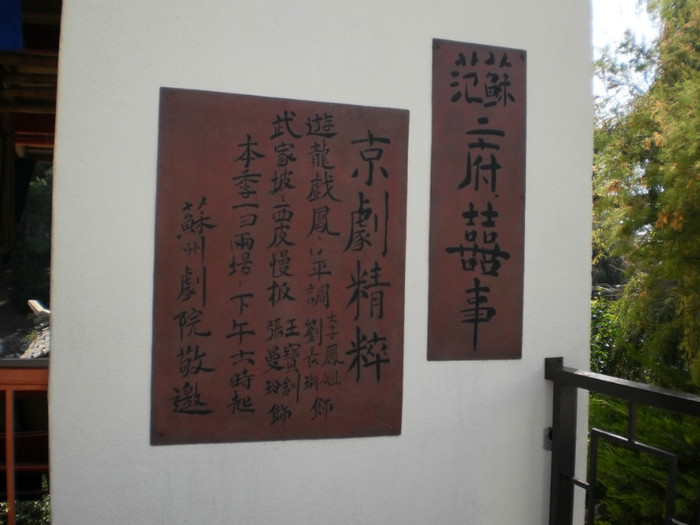 蘇范二府囍事
京劇精粹
遊龍戲鳳：四平調 李鳳姐 劉長瑜 飾
武家坡：西皮慢板 王寶釧 張曼玲 飾
本季一日兩場：下午六時起
蘇州劇院敬邀